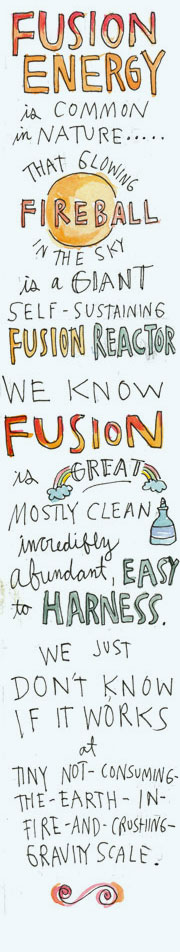 FUSION
ENERGY
is COMMON
in NATURE.....
THAT GLOWING
FIREBALL
IN THE SKY
is a GIANT
SELF-SUSTAINING
FUSION REACTOR
WE KNOW
FUSION
is GREAT
MOSTLY CLEAN
incredibly
abundant, EASY
to HARNESS.
WE JUST
DON'T KNOW
IF IT WORKS
at
TINY NOT-CONSUMING-
THE-EARTH-IN-
FIRE-AND-CRUSHING-
GRAVITY SCALE.